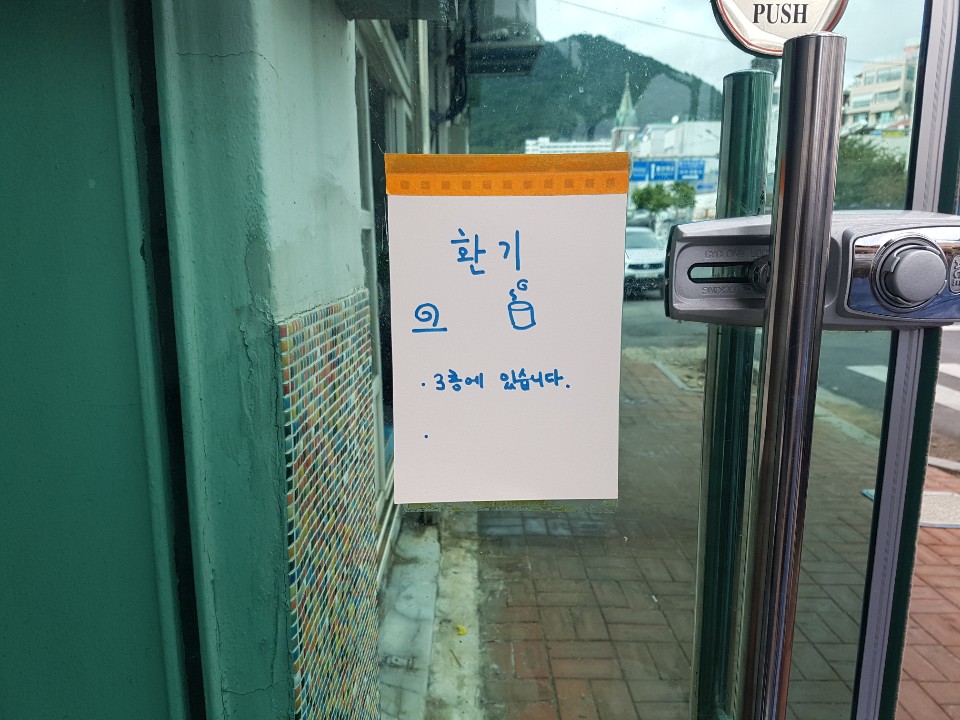 PUSH
환기
· 3층에 있습니다.
·